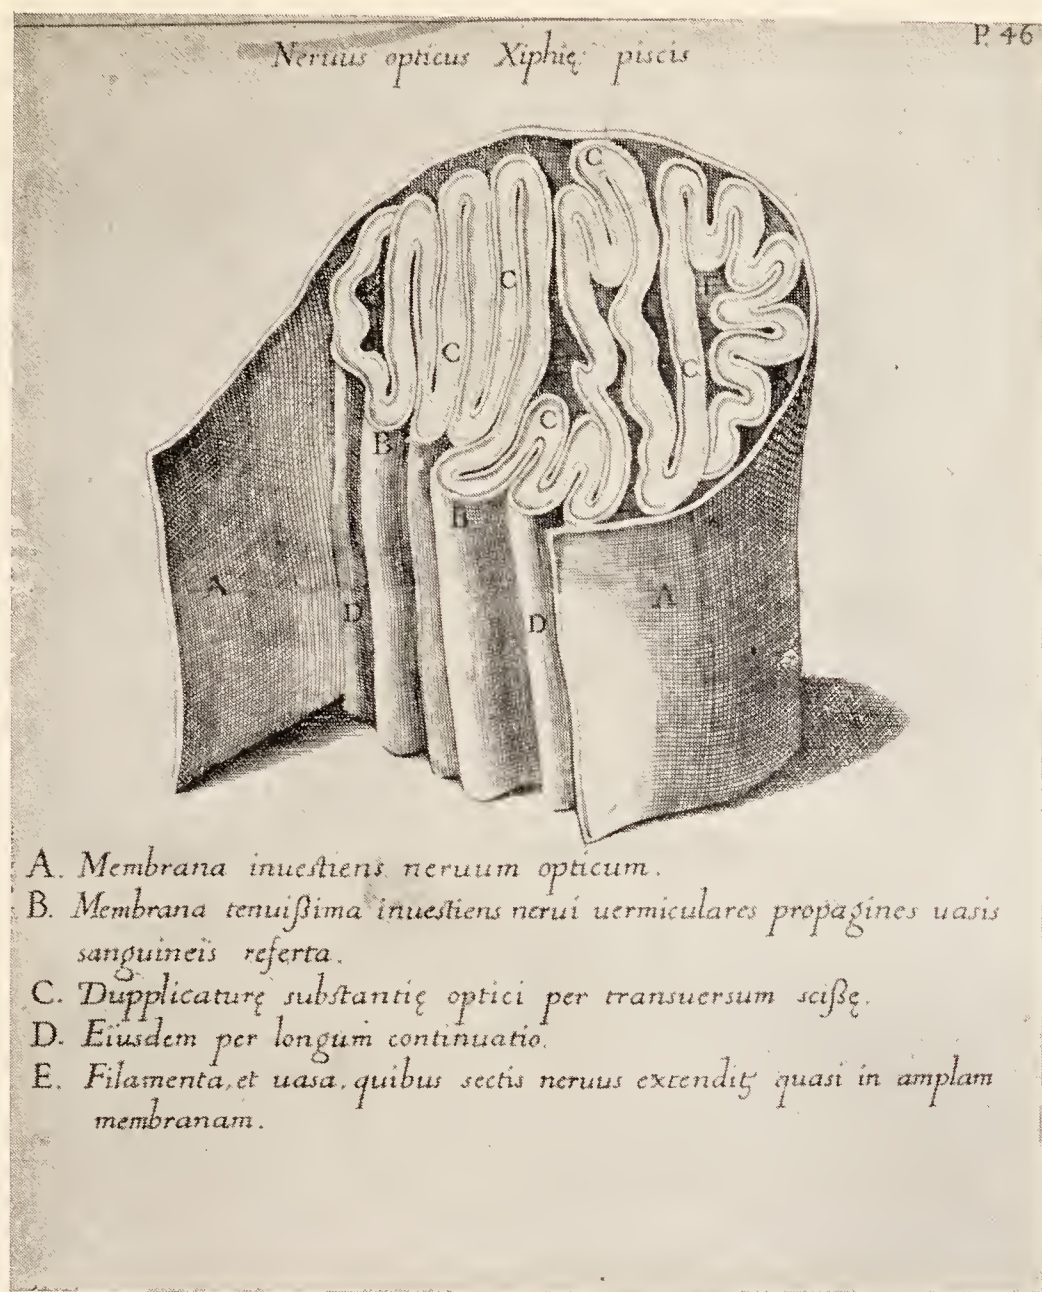 P. 46
Neruus opticus Xiphię piscis
C
C
E
C
C
C
B
B
A
A
D
D
A. Membrana inuestiens neruum opticum.
B. Membrana tenuißima inuestiens nerui uermiculares propagines uasis
sanguineis referta.
C. Dupplicaturę substantię optici per transuersum scißę.
D. Eiusdem per longum continuatio.
E. Filamenta, et uasa, quibus sectis neruus extenditꝫ quasi in amplam
membranam.